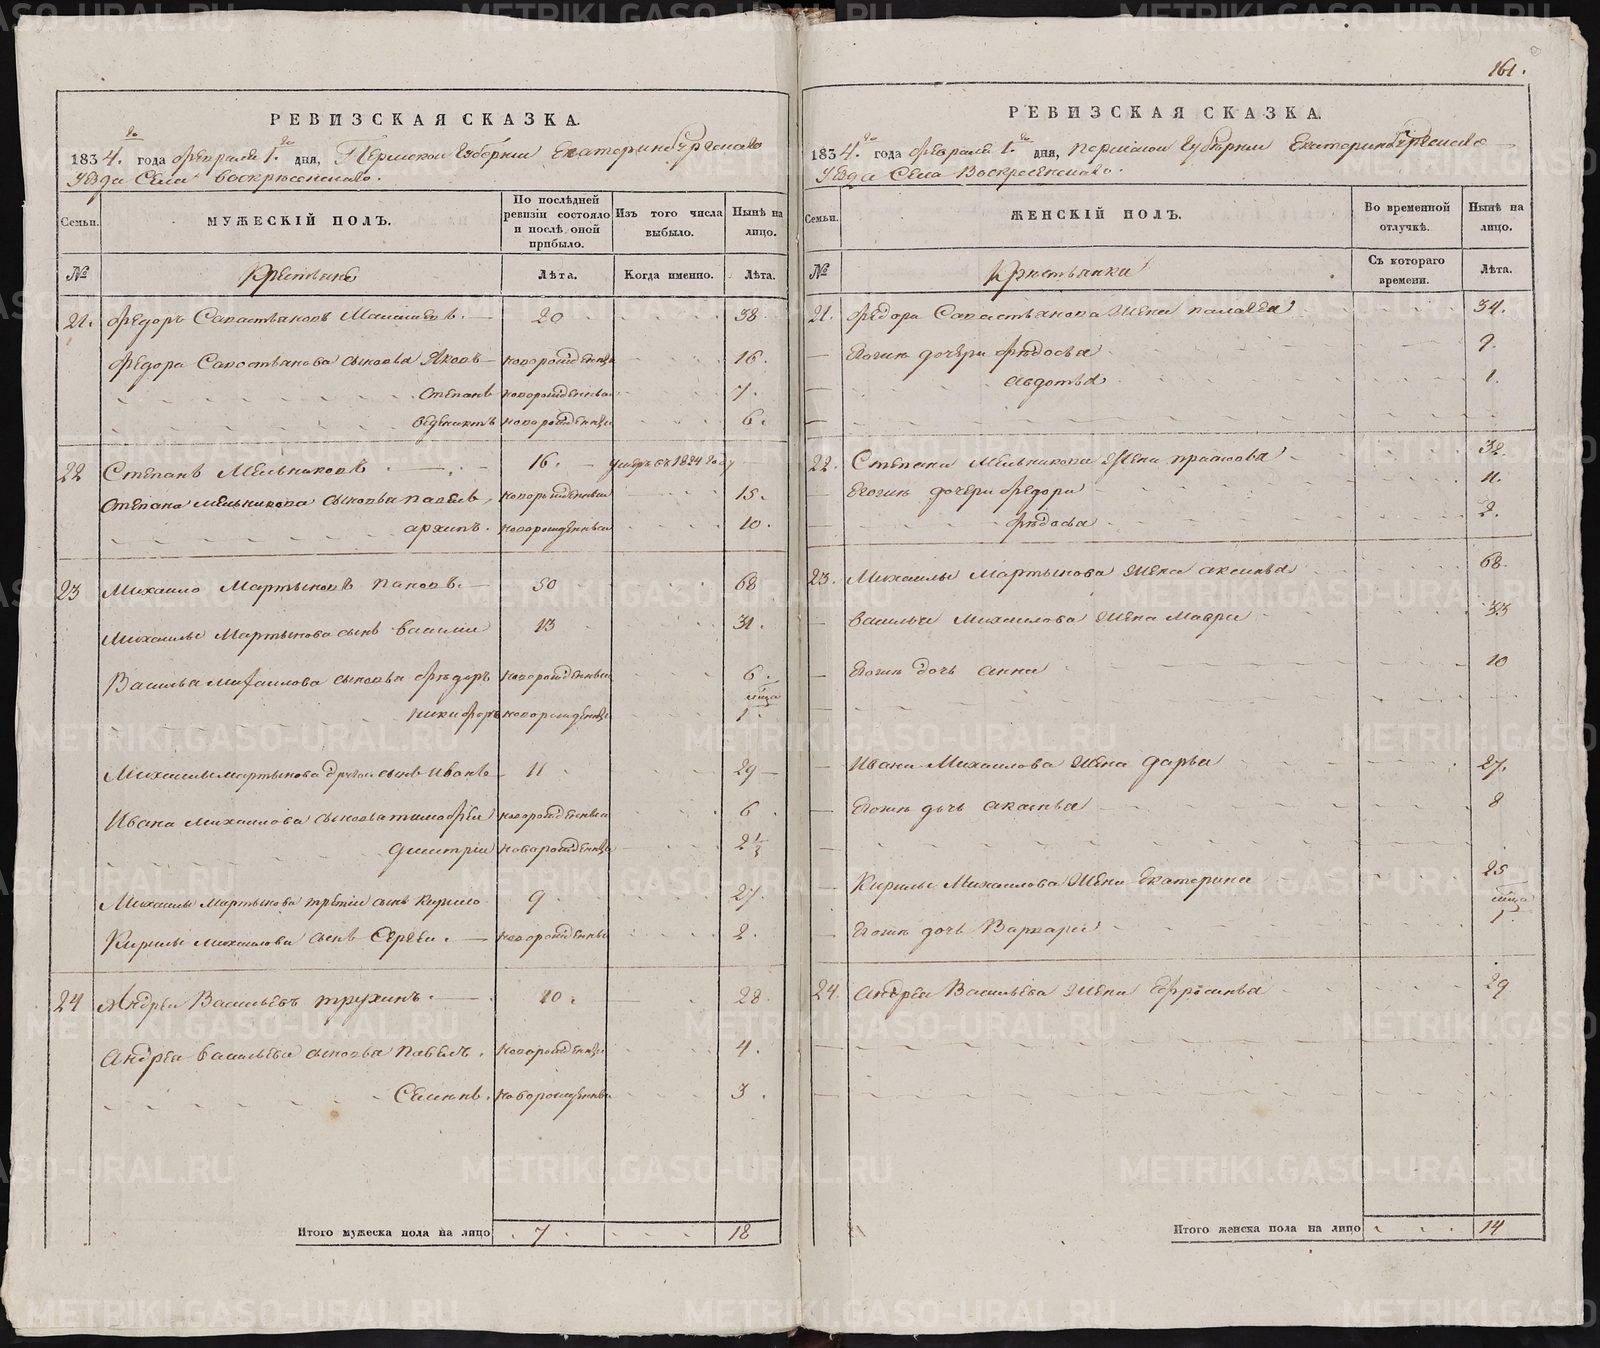 161.
РЕВИЗСКАЯ СКАЗКА.
1834.го года февраля 1.го дня, Пермской Губернии Екатеринбургскаго
уезда Села Воскресенскаго.
Семьи.
МУЖЕСКІЙ ПОЛЪ.
По послѣдней ревизіи состояло и послѣ оной прибыло.
Изъ того числа выбыло.
Нынѣ на лицо.
№
Крестьяне
Лѣта.
Когда именно.
Лѣта.
21. Федоръ Савостьяновъ 20 38.
Федора Савостьянова сыновья Яковъ новорожденныи 16.
Степанъ новорожденныи 7.
Веденихтъ новорожденныи 6.
22 Степанъ Мельниковъ 16. умеръ въ 1824 году
Степана Мельникова сыновья Павелъ новорожденныи 15.
архипъ. новорожденныи 10.
23 Михаило Мартыновъ Пановъ. 50 68
Михаилы Мартынова сынъ Василии 13 31.
Василья Михаилова сыновья Федоръ новорожденныи 6.
никифоръ новорожденныи мца 1.
Михаилы мартынова другои сынъ Иванъ 11 29
Ивана Михаилова сыновья тимофеи новорожденныи 6
дмитрии новорожденныи 2 1/3
Михаилы Мартынова третии сынъ Кирило 9 27.
Кирилы Михаилова сынъ Сергеи. новорожденныи 2.
24 Андреи Васильевъ трухинъ. 10. 28.
Андрея Васильева сыновья Павелъ. новорожденныи 4.
Семенъ. новорожденныи 3.
Итого мужеска пола на лицо 7. 18
РЕВИЗСКАЯ СКАЗКА.
1834.го года февраля 1.го дня, пермской Губернии Екатеринбургскаго
уезда Села Воскресенскаго.
Семьи.
ЖЕНСКІЙ ПОЛЪ.
Во временной отлучкѣ.
Нынѣ на лицо.
№
Крестьянки
Съ котораго времени.
Лѣта.
21. Федора Савостьянова жена палагея 34.
Егожъ дочери федосья 9.
авдотья 1.
22. Степана Мельникова жена прасковья 32.
Егожъ дочери Федора 11.
федосья 2.
23. Михаилы Мартынова жена аксинья 68.
Василья Михаилова жена Мавра 33
Егожъ дочь анна 10
Ивана Михаилова жена дарья 27.
Егожъ дочь аксинья 8
Кирилы Михаилова жена Екатерина 25
Егожъ дочь Варвара мца 1.
24. Андрея Васильева жена Ефросинья 29
Итого женска пола на лицо 14
METRIKI.GASO-URAL.RU